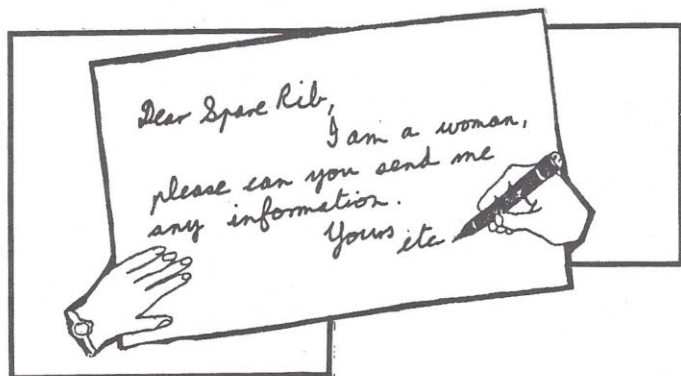 Dear Spare Rib,
I am a woman,
please can you send me
any information.
Yours etc